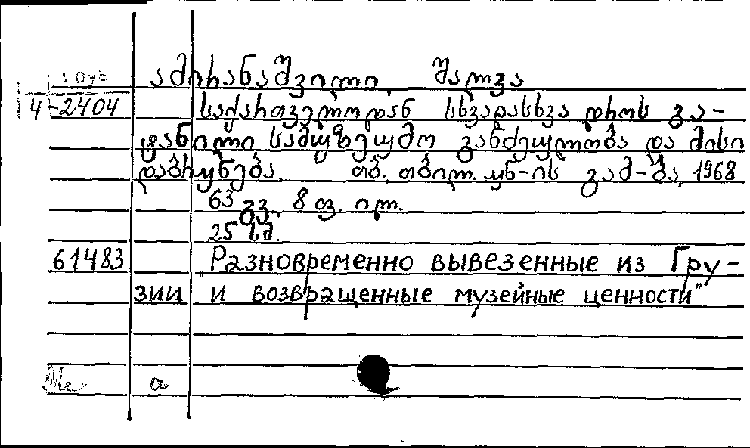 ამირანაშვილი, შალვა
4-2404 საქართველოდან სხვადასხვა დროს გა-
ტანილი სამუზეუმო განძეულობა და მისი
დაბრუნება. თბ. თბილ. უნ-ის გამ-ბა, 1968
63 გვ. 8 ფ. ილ.
25 სმ.
61483 "Разновременно вывезенные из Гру-
зии и возвращенные музейные ценности"
a